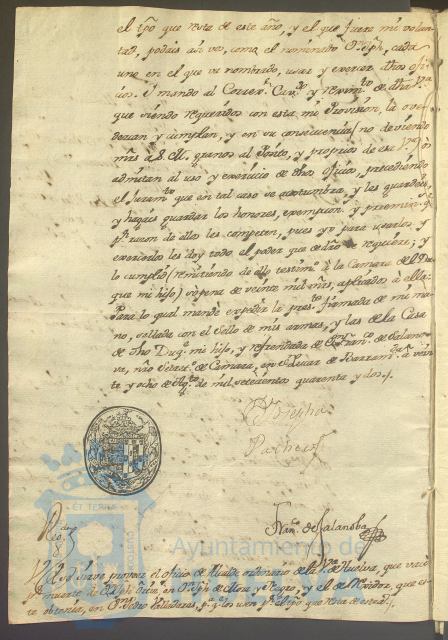 el tpõ que resta de este año, y el que fuere mi volun-
tad, podais asi vos, como el nominado Dn. Jph, cada
uno en el que va nombrado, usar y exercer dhos ofi-
cios. I mando al Correxr. Cavdo. y reximto. de dha va.
que siendo requeridos con esta mi Provision, la ove-
dezcan y cumplan, y en su consecuencia (no deviendo
mrs. a S. M., granos al Posito, y proprios de esa va.) os
admitan al uso y exercicio de dhos oficios, precediendo
el Juramto. que en tal caso se acostumbra, y les guarden,
y hagais guardar los honores, exempcions. y preeminas. q
pr. razon de ellos les competen, pues yo para usarlos y
exercerlos les doy todo el poder que de dro. se requiere; y
lo cumplid (remitiendo de ello testimo. a la Camara de el Du-
que mi hijo) sopena de veinte mil mrs, aplicados a ella.
Para lo qual mandè expedir la preste. firmada de mi ma-
no, sellada con el Sello de mis armas, y las de la Casa
de dho Duqe. mi hijo, y refrendada de Dn. Franco. de Salano-
va, nro Secreto. de Camara, en Sn. Lucar de Barrama. a vein-
te y ocho de Agto. de mil setecientos quarenta y dos.
Josepha
Pacheco
Rdo.
Franco. de Salanoba
ET TERRÆ
CUSTODIA
Ayuntamiento de
V.E. se sirve proveer el oficio de Alcalde ordinario de la Va. de Huelva, que vacò
pr. muerte de en Dn. Jph de Mora y Negro, y el de Rexidor, que es-
te obtenia, en Dn. Pedro Valladares, pa. q los usen pr. el tpo que resta de este año.